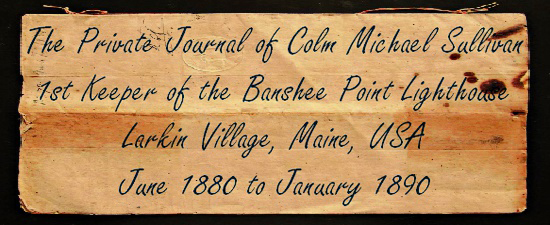 The Private Journal of Colm Michael Sullivan
1st Keeper of the Banshee Point Lighthouse
Larkin Village, Maine, USA
June 1880 to January 1890